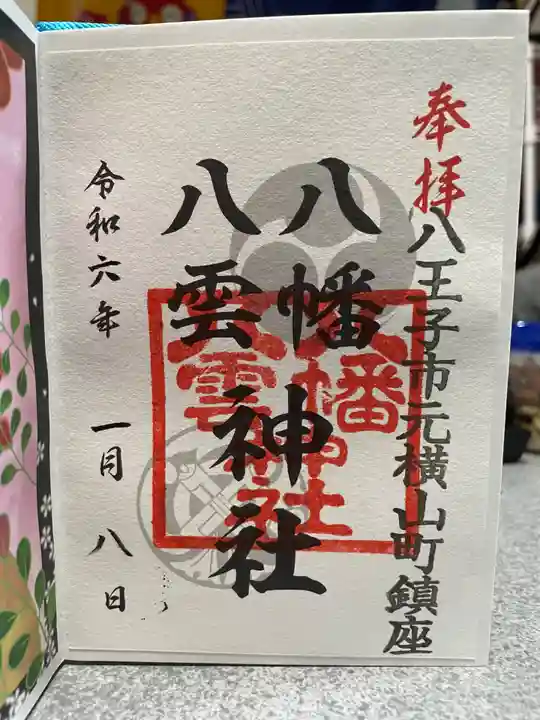 奉拝
八王子市元横山町鎮座
八幡
八雲
神社
八幡神社
八雲神社
令和六年
一月八日